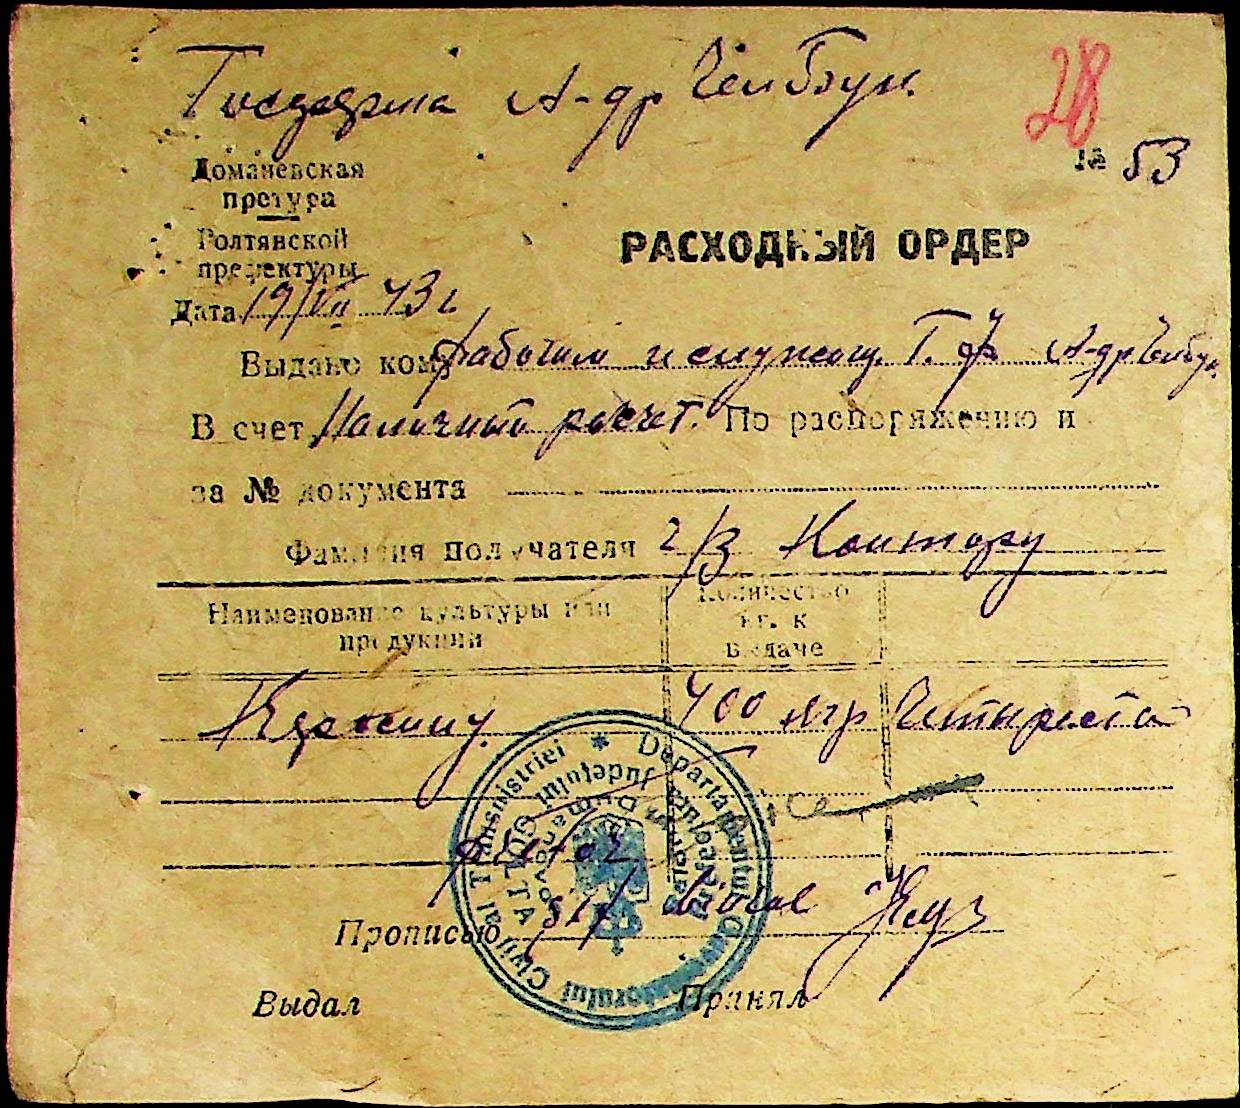 Госферма А-др Гейбун.
28
№ 53
Доманевская
претура
Голтянской
префектуры
РАСХОДНЫЙ ОРДЕР
Дата 19/VII 43 г
Выдано кому Рабочим и служащ. Г. Ф. А-др
В счет Наличный росчет. По распоряжению и
за № документа
Фамилия получателя г/з
Наименование культуры или
продукции
Количество
кг. к
выдаче
400 кгр Четыреста
Departamentul
Civil al Transnistriei
Judeţului
GOLTA
Прописью
Выдал
Принял